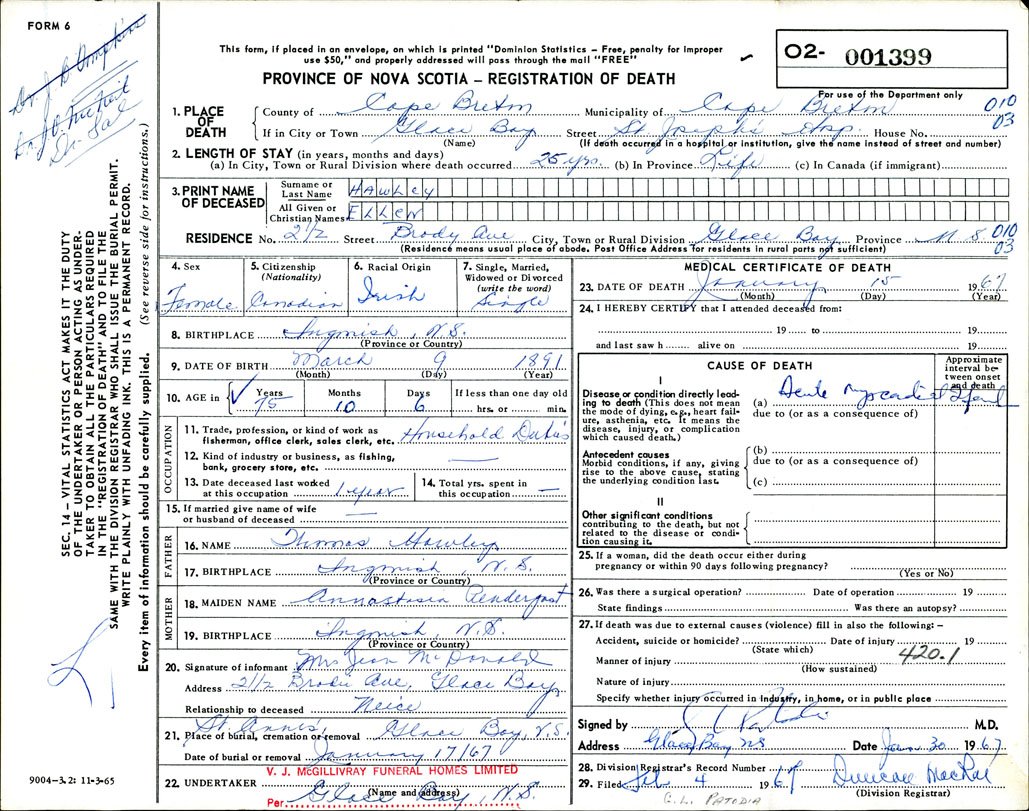 FORM 6
Dr. J. B. Tompkins
This form, if placed in an envelope, on which is printed "Dominion Statistics – Free, penalty for improper
use $50," and properly addressed will pass through the mail "FREE"
PROVINCE OF NOVA SCOTIA – REGISTRATION OF DEATH
O2- 001399
For use of the Department only
1. PLACE OF DEATH County of Cape Breton Municipality of Cape Breton 010
If in City or Town Glace Bay Street St Joseph's Hosp. House No. 03
(Name) (If death occurred in a hospital or institution, give the name instead of street and number)
2. LENGTH OF STAY (in years, months and days)
(a) In City, Town or Rural Division where death occurred 25 yrs. (b) In Province Life (c) In Canada (if immigrant)
3. PRINT NAME OF DECEASED Surname or Last Name HAWLEY
All Given or Christian Names ELLEN
RESIDENCE No. 21/2 Street Brody Ave City, Town or Rural Division Glace Bay Province N S 010
(Residence means usual place of abode. Post Office Address for residents in rural parts not sufficient) 03
4. Sex Female
5. Citizenship (Nationality) Canadian
6. Racial Origin Irish
7. Single, Married, Widowed or Divorced (write the word) Single
8. BIRTHPLACE Ingonish, N.S.
(Province or Country)
9. DATE OF BIRTH March 9 1891
(Month) (Day) (Year)
10. AGE in Years Months Days If less than one day old
75 10 6 hrs. or min.
OCCUPATION
11. Trade, profession, or kind of work as fisherman, office clerk, sales clerk, etc. Household Duties
12. Kind of industry or business, as fishing, bank, grocery store, etc. —
13. Date deceased last worked at this occupation 1 year
14. Total yrs. spent in this occupation —
15. If married give name of wife or husband of deceased —
FATHER
16. NAME Thomas Hawley
17. BIRTHPLACE Ingonish, N.S.
(Province or Country)
MOTHER
18. MAIDEN NAME Annastasia
19. BIRTHPLACE Ingonish, N.S.
(Province or Country)
20. Signature of informant Mrs Jean McDonald
Address 21/2 Brodie Ave, Glace Bay
Relationship to deceased Neice
21. Place of burial, cremation or removal St Anne's, Glace Bay, N.S.
Date of burial or removal January 17/67
V. J. McGILLIVRAY FUNERAL HOMES LIMITED
22. UNDERTAKER (Name and address)
Per Glace Bay, N.S.
MEDICAL CERTIFICATE OF DEATH
23. DATE OF DEATH January 15 1967
(Month) (Day) (Year)
24. I HEREBY CERTIFY that I attended deceased from:
19 to 19
and last saw h alive on 19
CAUSE OF DEATH
Approximate interval between onset and death
I
Disease or condition directly leading to death (This does not mean the mode of dying, e.g., heart failure, asthenia, etc. It means the disease, injury, or complication which caused death.)
(a) Acute
due to (or as a consequence of)
Antecedent causes
Morbid conditions, if any, giving rise to the above cause, stating the underlying condition last.
(b)
due to (or as a consequence of)
(c)
II
Other significant conditions
contributing to the death, but not related to the disease or condition causing it.
25. If a woman, did the death occur either during pregnancy or within 90 days following pregnancy?
(Yes or No)
26. Was there a surgical operation? Date of operation 19
State findings Was there an autopsy?
27. If death was due to external causes (violence) fill in also the following: –
Accident, suicide or homicide? Date of injury 19
(State which) 420.1
Manner of injury
(How sustained)
Nature of injury
Specify whether injury occurred in Industry, in home, or in public place
Signed by M.D.
Address Glace Bay NS Date Jan. 30 1967
28. Division Registrar's Record Number
29. Filed Feb 4 1967 Duncan MacRae
(Division Registrar)
G. L. PATODIA
SEC. 14 – VITAL STATISTICS ACT MAKES IT THE DUTY
OF THE UNDERTAKER OR PERSON ACTING AS UNDER-
TAKER TO OBTAIN ALL THE PARTICULARS REQUIRED
IN THE "REGISTRATION OF DEATH" AND TO FILE THE
SAME WITH THE DIVISION REGISTRAR WHO SHALL ISSUE THE BURIAL PERMIT.
WRITE PLAINLY WITH UNFADING INK. THIS IS A PERMANENT RECORD.
Every item of information should be carefully supplied. (See reverse side for instructions.)
9004-3.2: 11-3-65